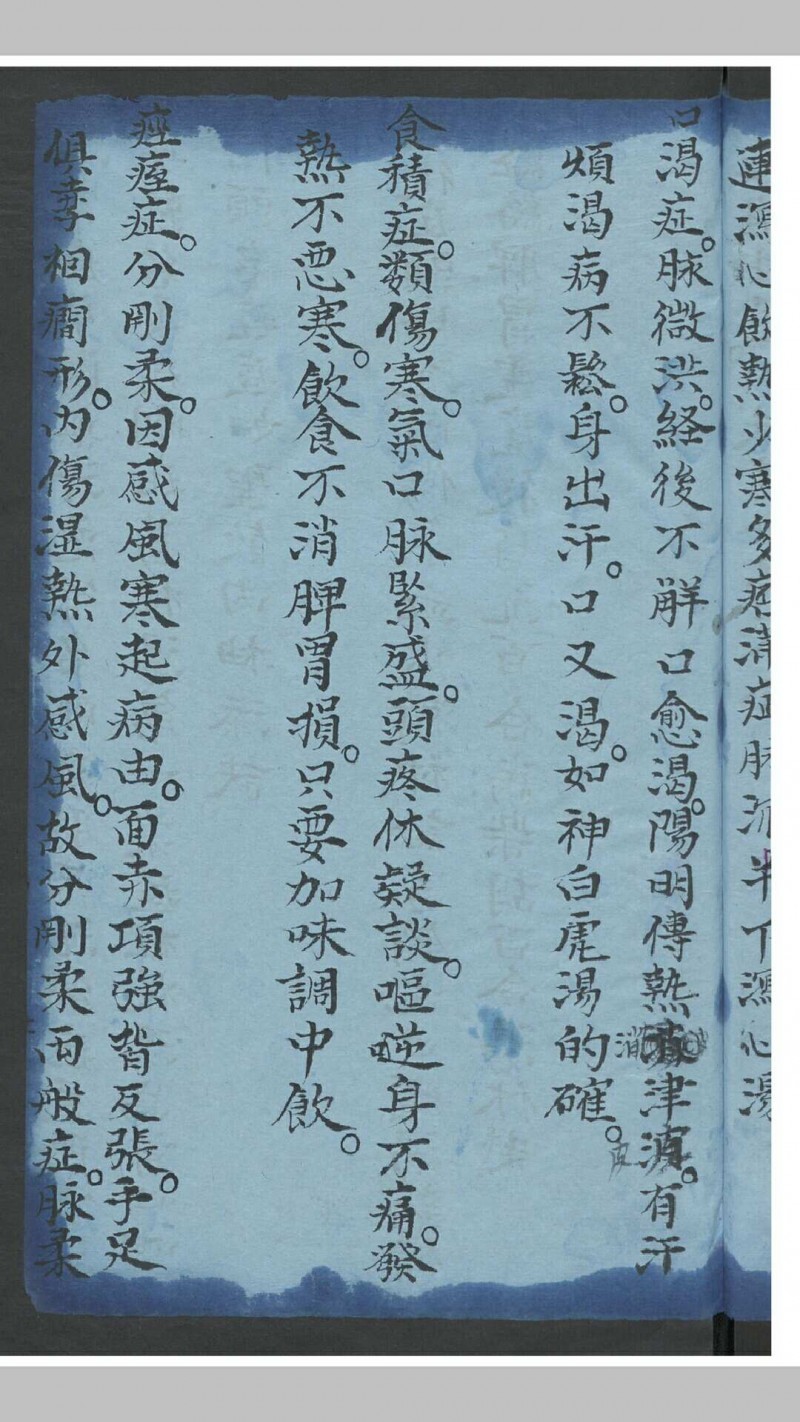 連瀉心飲熱少寒多痞滿症脉沉半下瀉心湯
口渴症。脉微洪。経後不觧口愈渴。陽明傳熱消津液。有汗
煩渴病不鬆。身出汗。口又渴。如神白虎湯的確。
食積症。類傷寒。氣口脉緊盛。頭疼休疑談。嘔逆身不痛。發
熱不惡寒。飲食不消脾胃損。只要加味調中飲。
痙痓症。分剛柔。因感風寒起病由。面赤項強背反張。手足
俱牽相癎形。内傷濕熱外感風。故分剛柔両般症。脉柔